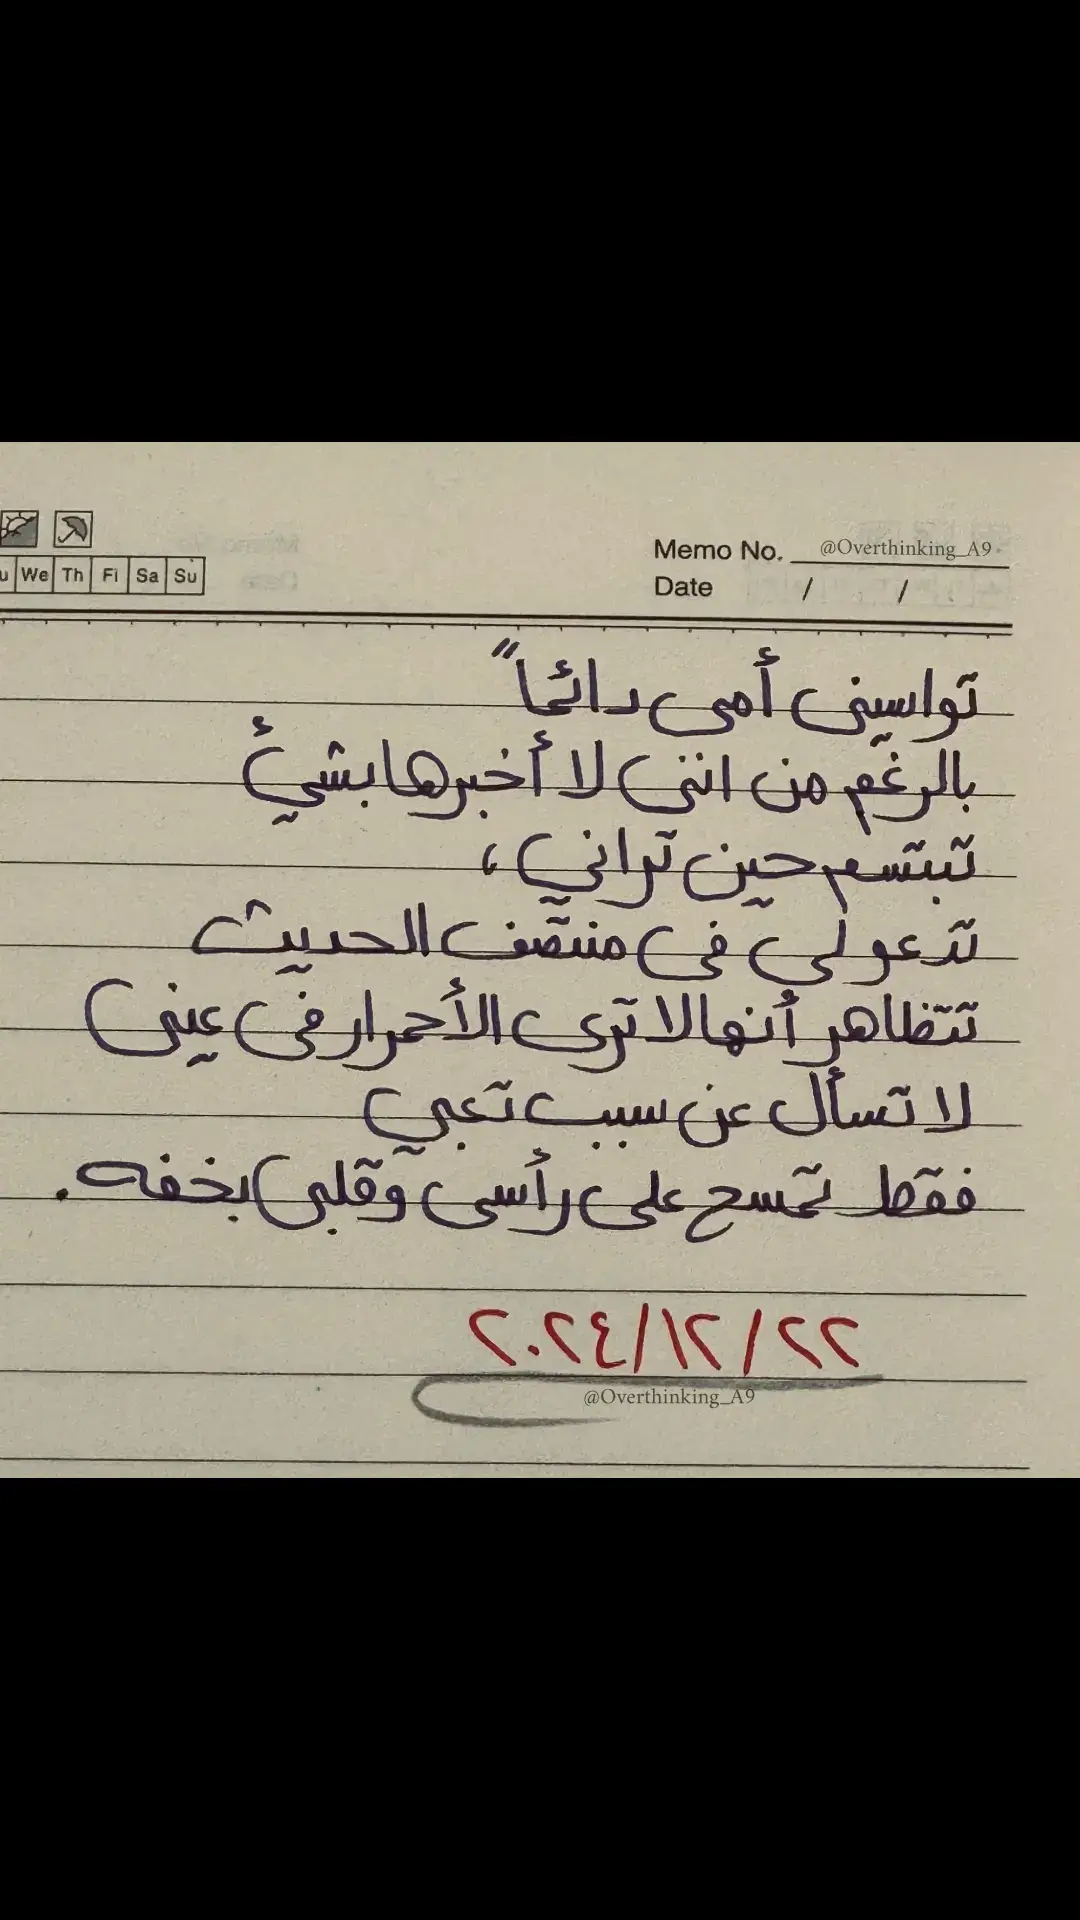 Memo No. @Overthinking_A9
We Th Fi Sa Su
Date / /
تواسيني أمي دائماً
بالرغم من انني لا أخبرها بشيئ
تبتسم حين تراني ،
تدعو لي في منتصف الحديث
تتظاهر أنها لا ترى الأحمرار في عيني
لا تسأل عن سبب تعبي
فقط تمسح على رأسي وقلبي بخفه .
٢٠٢٤/١٢/٢٢
@Overthinking_A9